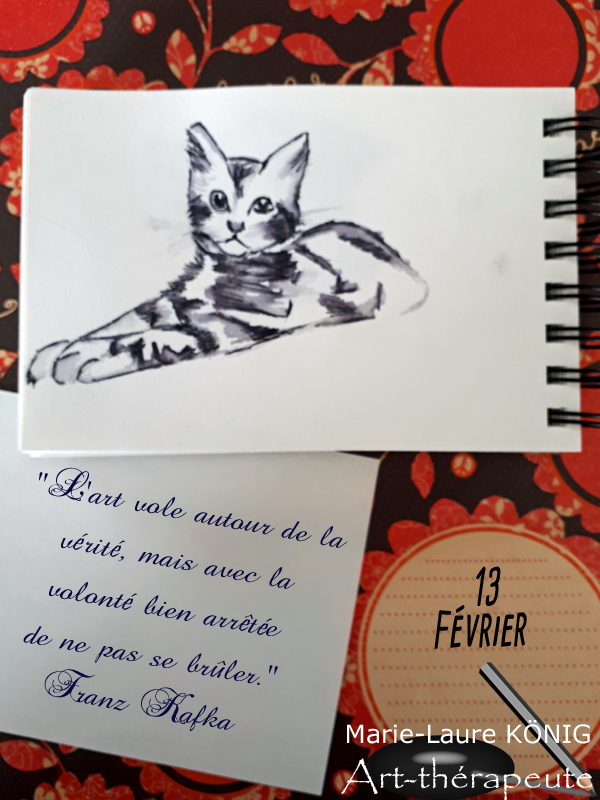 "L'art vole autour de la
vérité, mais avec la
volonté bien arrêtée
de ne pas se brûler."
Franz Kafka
13
FÉVRIER
Marie-Laure KÖNIG
Art-thérapeute